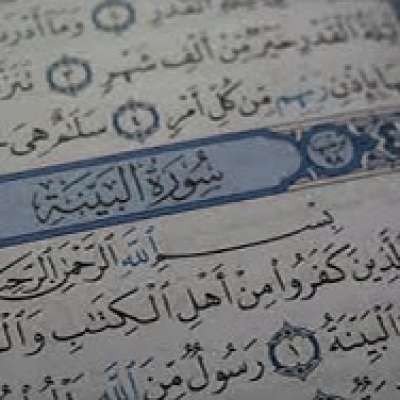 ٱلْقَدْرِ ٢ وَمَآ أَدْرَ
لَيْلَةُ ٱلْقَدْرِ خَيْرٌ مِّنْ أَلْفِ شَهْرٍ ٣ تَنَزَّ
هَا بِإِذْنِ رَبِّهِم مِّن كُلِّ أَمْرٍ ٤ سَلَٰمٌ هِىَ
سُورَةُ البَيِّنَةِ
بِسْمِ ٱللَّهِ ٱلرَّحْمَٰنِ ٱلرَّحِيمِ
ٱلَّذِينَ كَفَرُوا۟ مِنْ أَهْلِ ٱلْكِتَٰبِ وَٱلْ
ٱلْبَيِّنَةُ ١ رَسُولٌ مِّنَ ٱللَّهِ